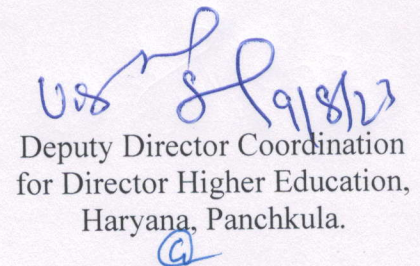 9/8/23
Deputy Director Coordination
for Director Higher Education,
Haryana, Panchkula.